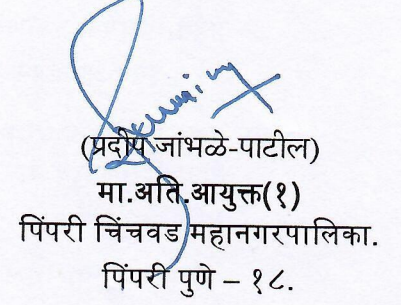 (प्रदीप जांभळे-पाटील)
मा.अति.आयुक्त(१)
पिंपरी चिंचवड महानगरपालिका.
पिंपरी पुणे – १८.